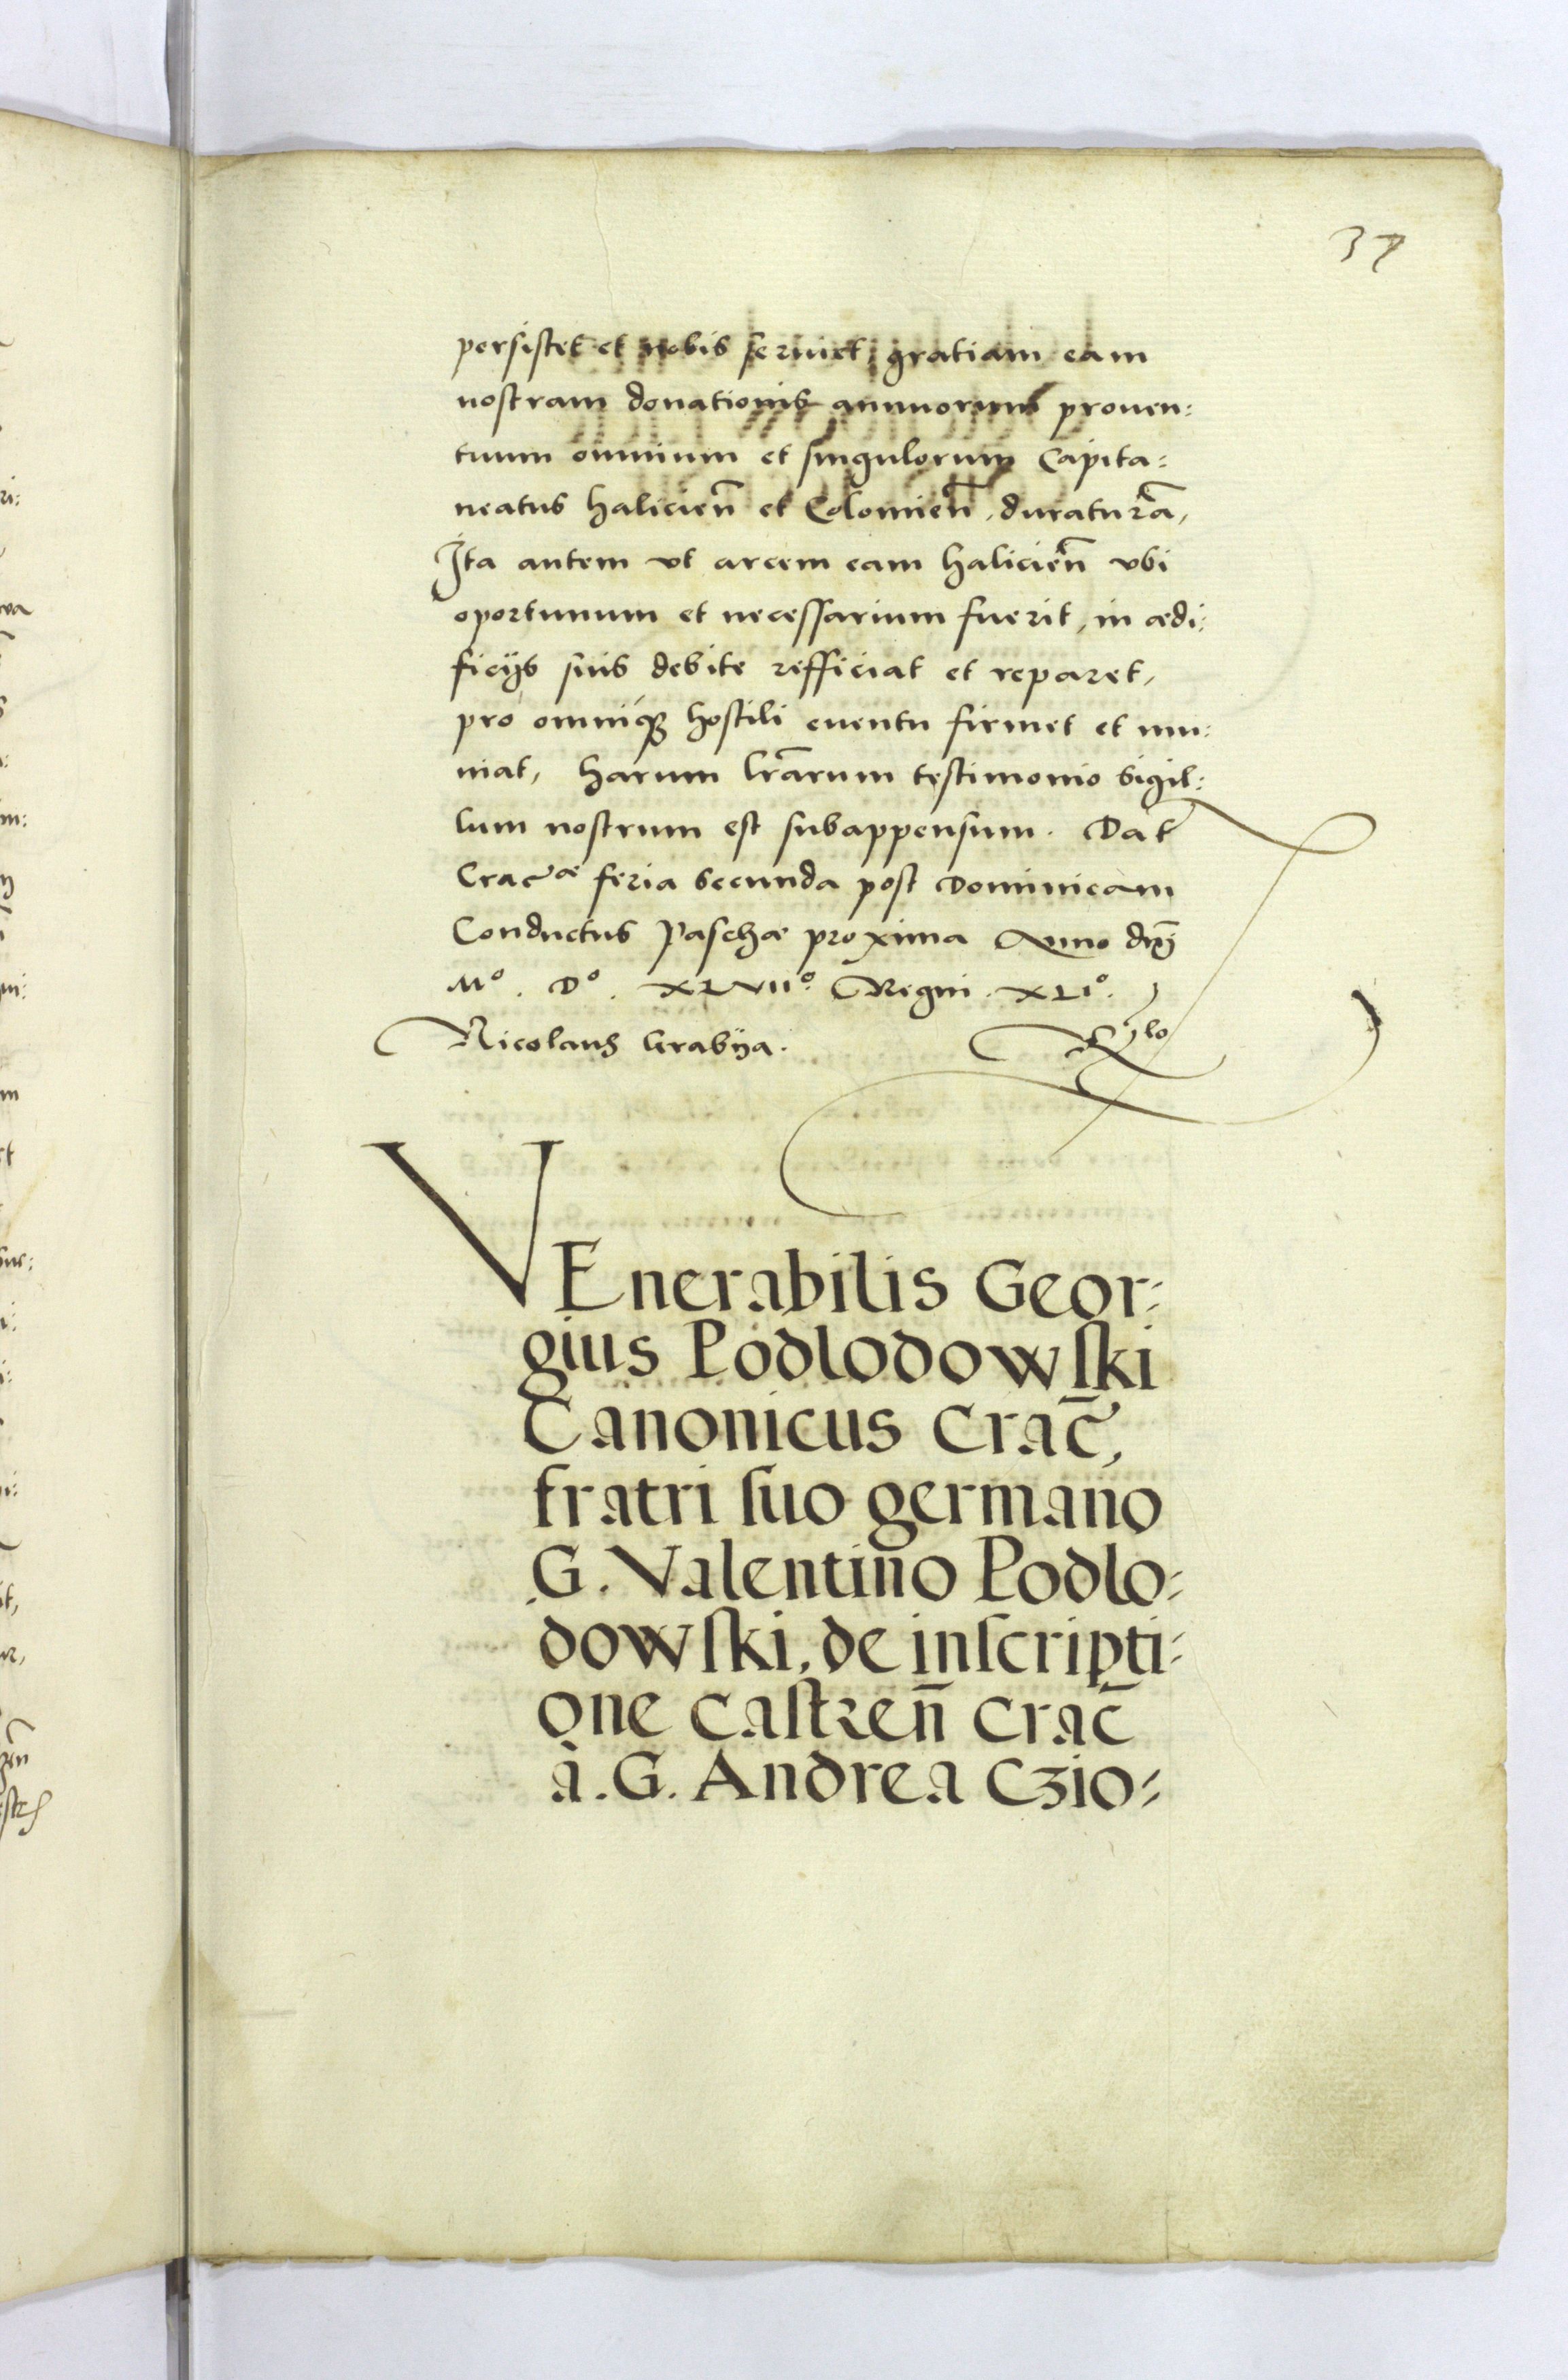 37
persistet et nobis seruiet, gratiam eam
nostram donationis annuorum prouen:
tuum omnium et singulorum Capita:
neatus halicien̄ et Colomien̄, duraturā,
Ita autem vt arcem eam halicien̄ vbi
oportunum et necessarium fuerit, in ædi:
ficijs suis debite refficiat et reparet,
pro omniq̨ hostili euentu firmet et mu:
niat, harum lr̄arum testimonio sigil:
lum nostrum est subappensum. Dat̄
Crac̄æ feria secunda post Dominicam
Conductus Paschæ proxima Anno dn̄j
Mº. Dº. XLVIIº. Regni. XLIº.
Nicolaus Grabya.
VEnerabilis Geor:
gius Podlodowſki
Canonicus Crac̄,
fratri ſuo germano
G. Valentino Podlo:
dowſki, de inſcripti:
one caſtren̄ crac̄
à. G. Andrea Czio: